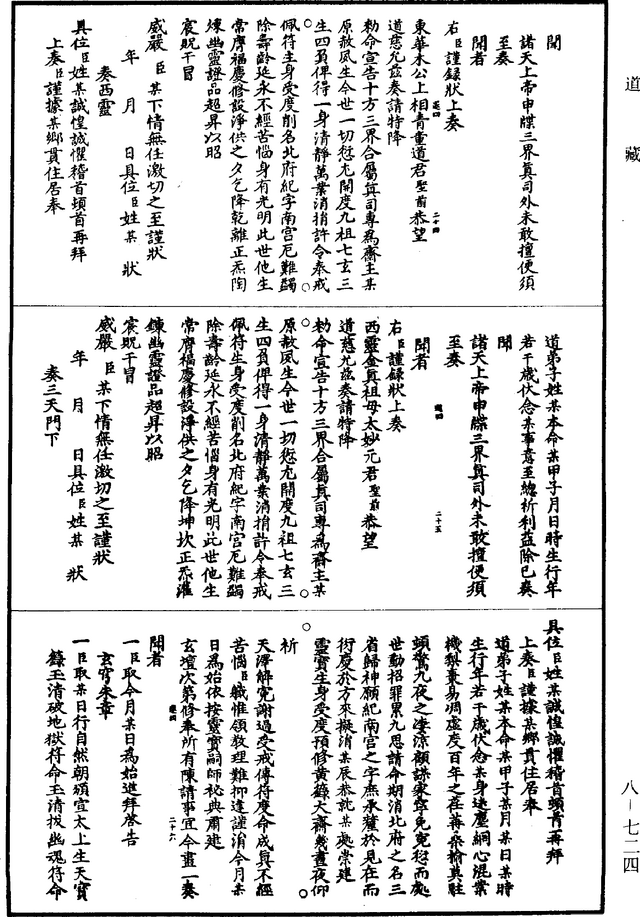 道藏
聞
諸天上帝申牒三界真司外未敢擅便須
至奏
聞者
右臣謹錄狀上奏
東華木公上相青童道君聖前恭望
道慈允茲奏請特降
勑命宣告十方三界合屬真司專為齋主某
原赦夙生今世一切愆尤開度九祖七玄三
生四負俾得一身清靜萬業消捐許令奉戒
佩符生身受度削名北府紀字南宮厄難蠲
除壽齡延永不經苦惱身有光明此世他生
常膺福慶修設淨供之夕乞降乾離正炁陶
煉幽靈證品超昇以昭
宸貺干冒
威嚴臣某下情無任激切之至謹狀
年月日具位臣姓某狀
奏西靈
具位臣姓某誠惶誠懼稽首頓首再拜
上奏臣謹據某鄉貫住居奉
道弟子姓某本命某甲子月日時生行年
若干歲伏念某事意至總祈利益除已奏
聞
諸天上帝申牒三界真司外未敢擅便須
至奏
聞者
右臣謹錄狀上奏
西靈金真祖母太妙元君聖前恭望
道慈允茲奏請特降
勑命宣告十方三界合屬真司專為齋主某
原赦夙生今世一切愆尤開度九祖七玄三
生四負俾得一身清靜萬業消捐許令奉戒
佩符生身受度削名北府紀字南宮厄難蠲
除壽齡延永不經苦惱身有光明此世他生
常膺福慶修設淨供之夕乞降坤坎正炁灌
鍊幽靈證品超昇以昭
宸貺干冒
威嚴臣某下情無任激切之至謹狀
年月日具位臣姓某狀
奏三天門下
具位臣姓某誠惶誠懼稽首頓首再拜
上奏臣謹據某鄉貫住居奉
道弟子姓某本命某甲子某月某日某時
生行年若干歲伏念某身迷塵網心混業
機梨棗易凋虛度百年之在苒桑榆莫駐
頭驚九夜之淒涼顧謀家窀免愆而處
世動招罪累九思請命期消北府之名三
省歸神願紀南宮之字庶承釐於見在而
衍慶於方來擬消某辰恭就某處崇建
靈寶生身受度預修黃籙大齋幾晝夜仰
祈
天澤解冤謝過受戒傳符度命成真不經
苦惱臣職惟領教理難抑違謹涓今月某
日為始依按靈寶嗣師祕典肅建
玄壇次第修奉所有陳請事宜今畫一奏
聞者
一臣取今月某日為始進拜啓告
玄穹朱章
一臣取某日行自然朝頒宣太上生天寶
籙玉清破地獄符命玉清拔幽魂符命
八－七二四